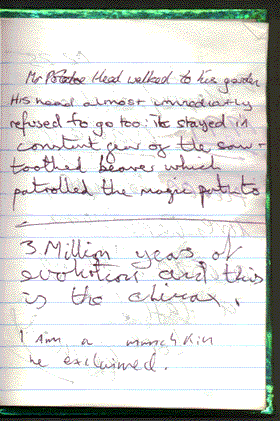 Mr Potatoe Head walked to his garden
His head almost immediatly
refused to go too: He stayed in
constant fear of the saw-
toothed beaver which
patrolled the magic potato
3 Million years of
evolution and this
is the climax,
I am a munchkin
he exclaimed.